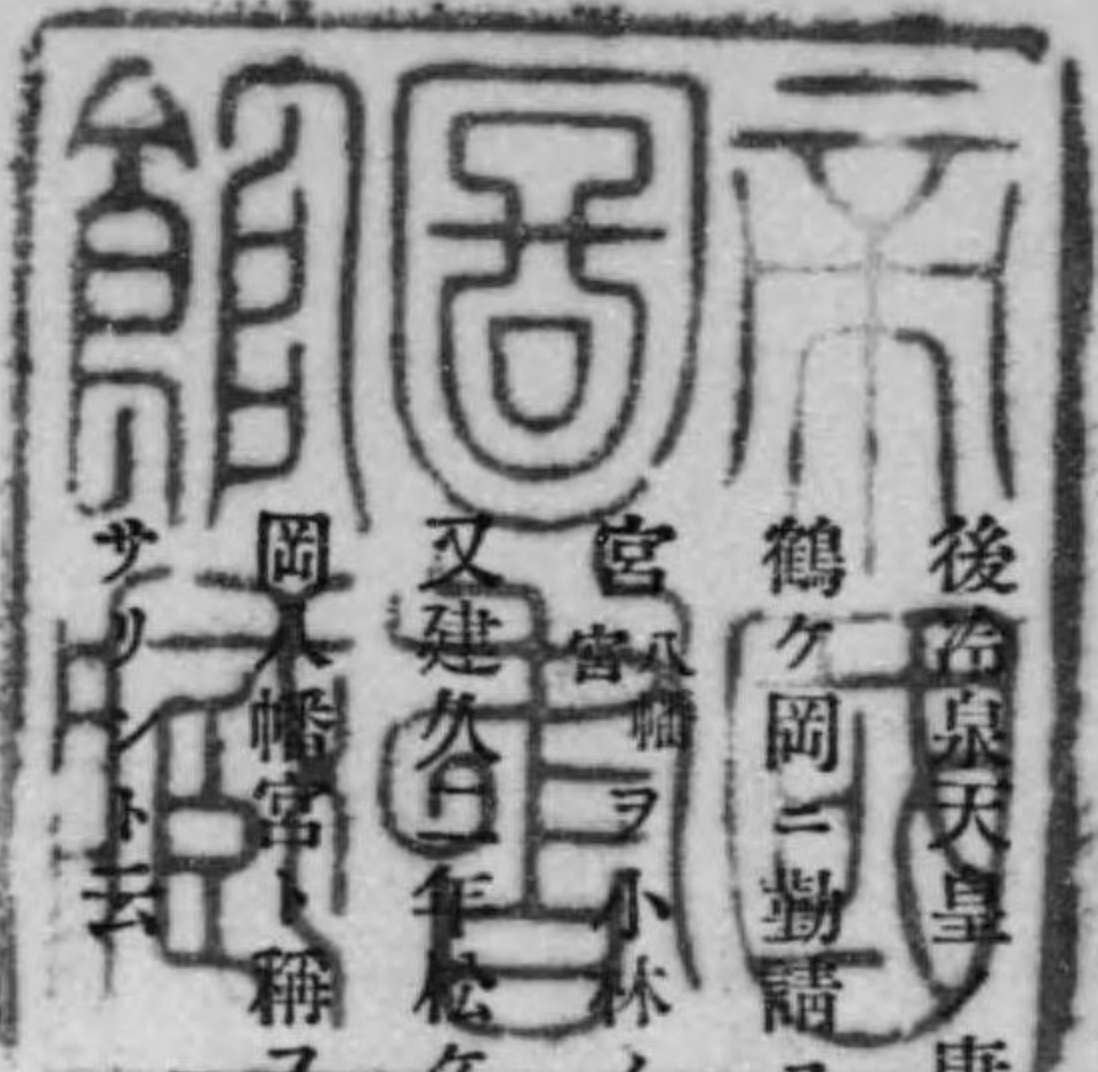 帝國
圖書
館藏
後冷泉天皇ノ康
鶴ケ岡ニ勤請ス
宮八幡宮ヲ小林ノ
又建久二年松ケ
岡八幡宮ト稱ス
サリシト云